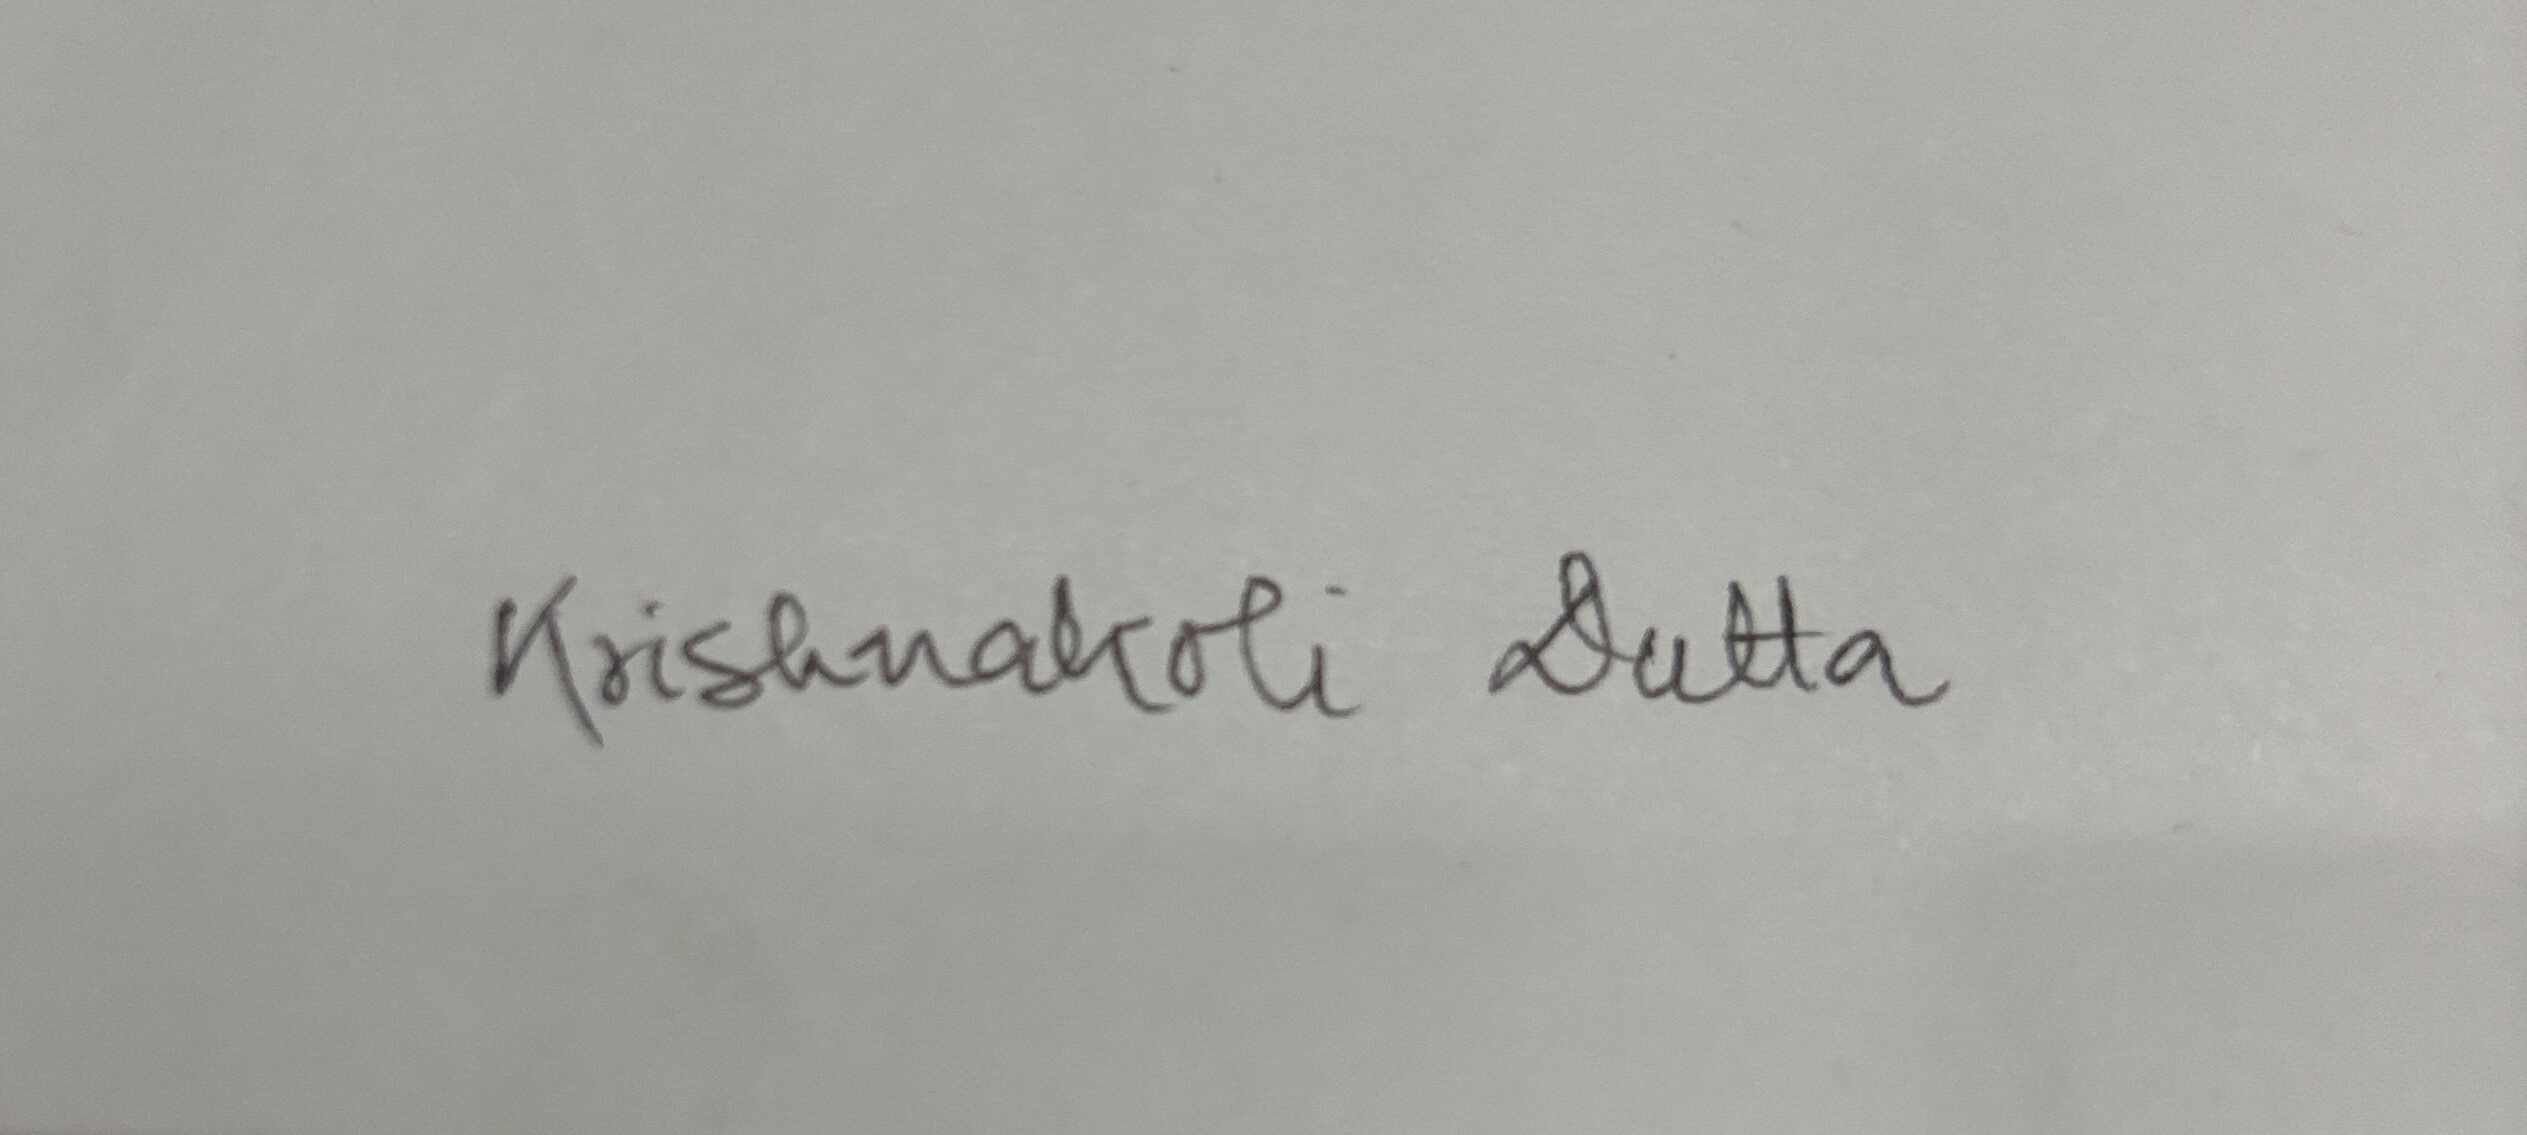 Krishnakoli Dutta